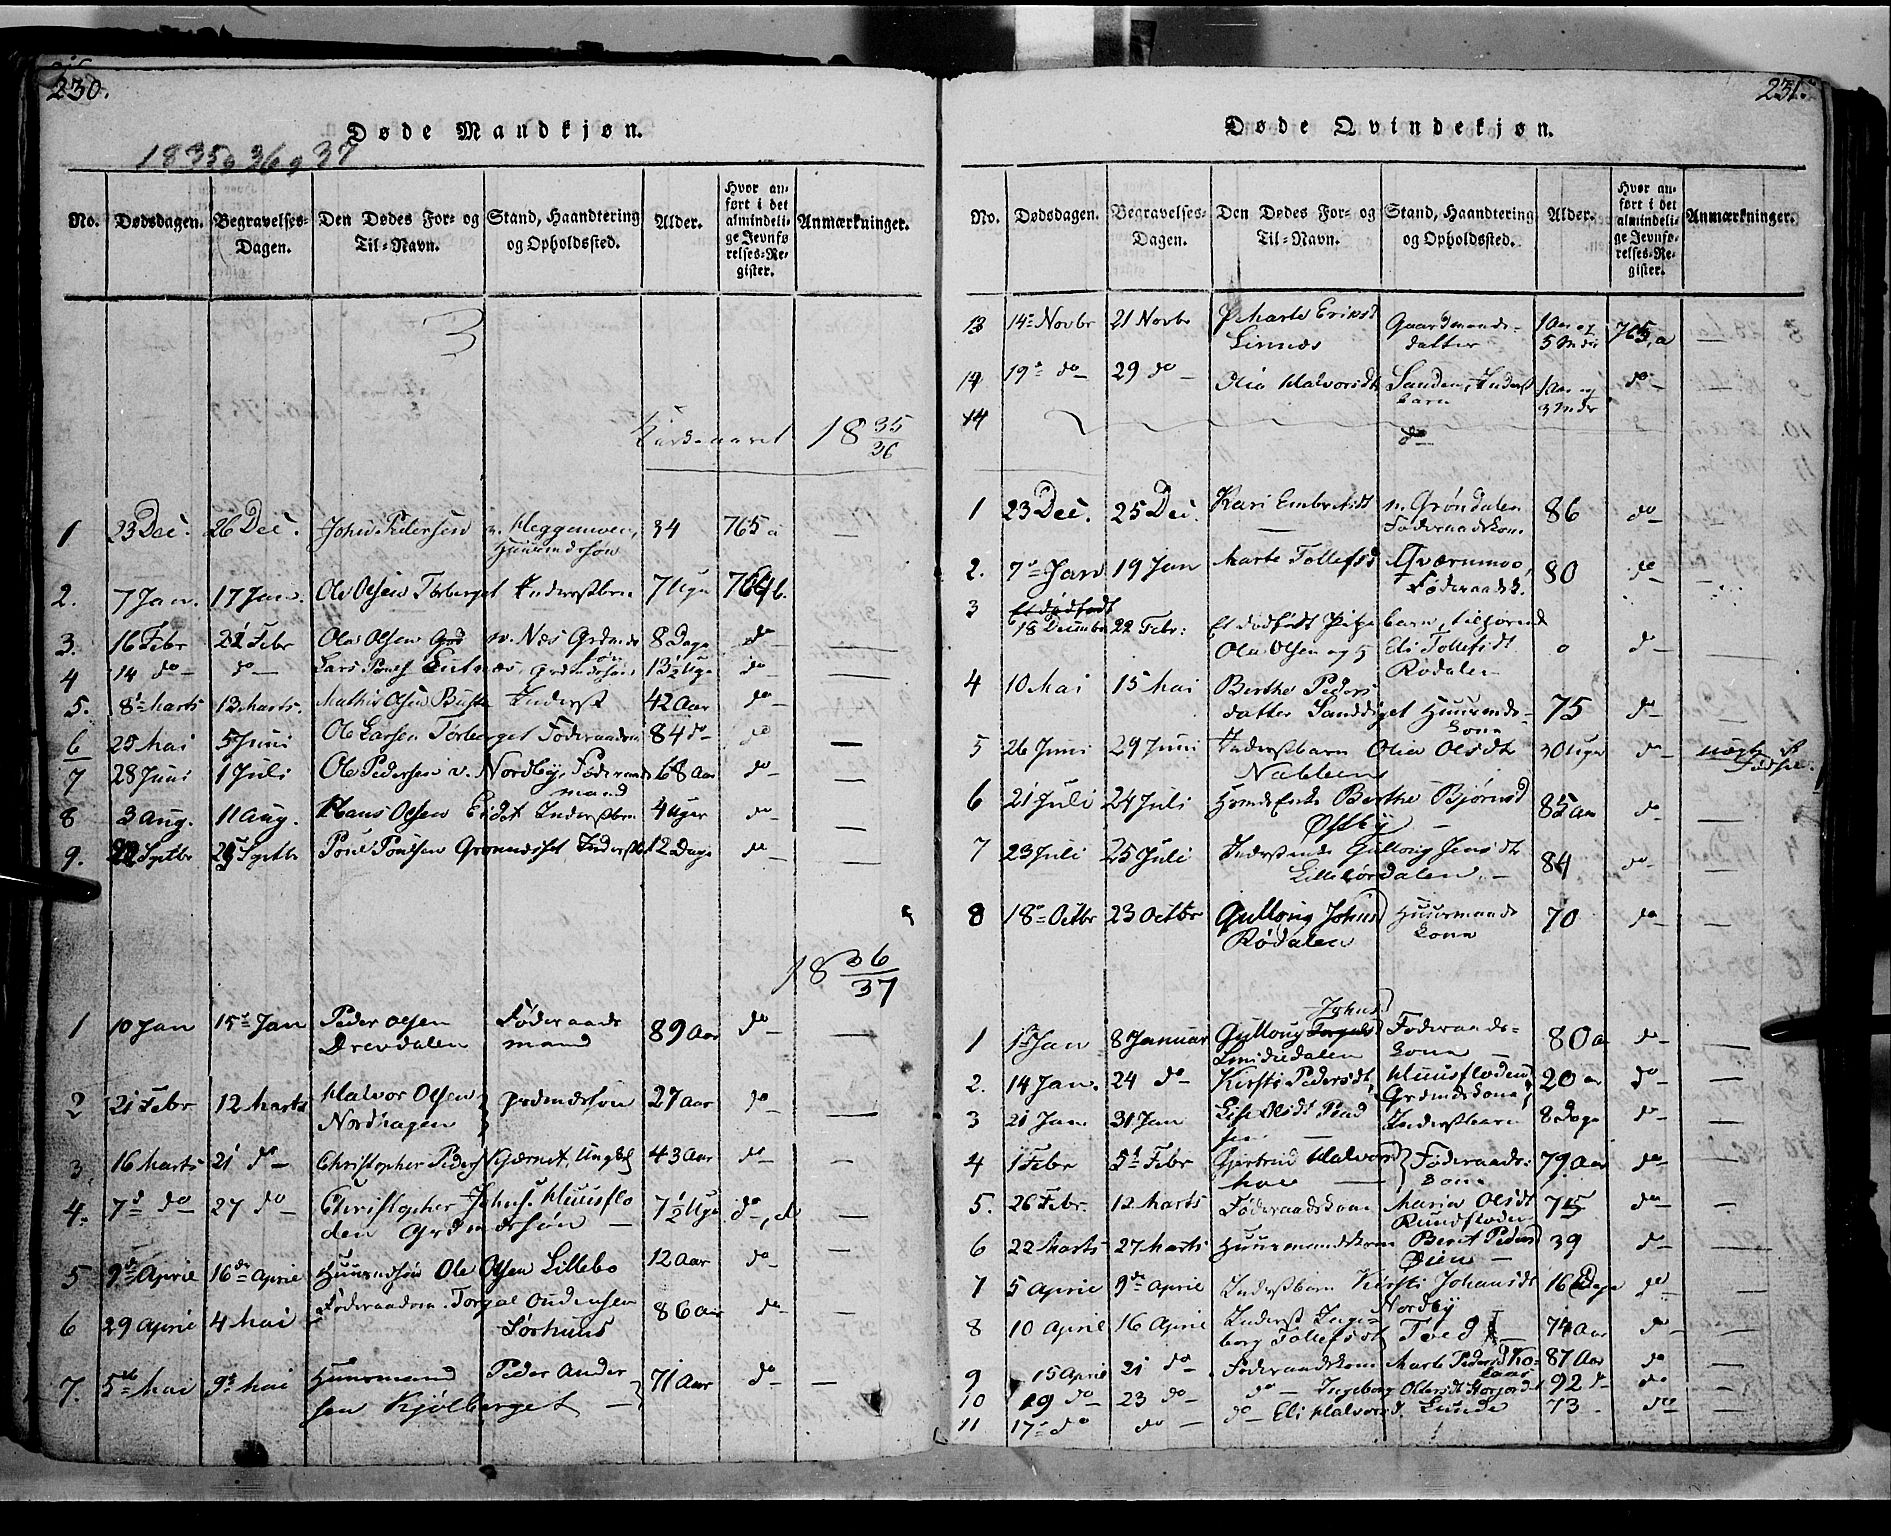 230.
Døde Mandkjøn.
1835 o 36 o 37
No. Dødsdagen. Begravelses-Dagen. Den Dødes For- og Til-Navn. Stand, Haandtering og Opholdssted. Alder. Hvor anført i det almindelige Jevnførelses-Register. Anmærkninger.
Kirkeaaret 18 35/36
1 23 Dec. 26 Dec. John Pedersen v. Heggemoen, Huusmdssøn 34 765 a
2. 7 Jan. 17 Jan. Ole Olsen Torberget Inderstbrn 7 Uger 764 b.
3. 16 Febr 21 Febr Ola Olsen v. Næs Grdmds søn 8 Dage do —
4 14 do — do — Lars Poulsen Grdmdssøn 13½ Uge do —
5. 8de Marts 13 Marts. Mathis Olsen Inderst 42 Aar do —
6 25 Mai 5 Juni Ole Larsen Torberget Føderaadsm 84 do — do —
7 28 Juni 1 Juli Ole Pedersen v. Nordby, Føderaads mand 68 Aar do —
8 3 Aug. 11 Aug. Hans Olsen Eidet Inderstbrn 4 Uger do —
9. 22 Septbr 29 Septbr Poul Poulsen Grønoset Inderstb 12 Dage do —
18 36/37
1 10 Jan 15de Jan Peder Olsen Drevdalen Føderaads mand 89 Aar do —
2 21 Febr 12 Marts Halvor Olsen Nordhagen Grdmdssøn 27 Aar do —
3. 16 Marts 21 do — Christopher Peders Gjørnet, Ungkl 43 Aar do —
4. 7de do 27 do — Christopher Johns. Huusflo den Grdmdssøn — 7½ Uge do, d —
5 9de April 16de April Huusmdssøn Ole Olsen Lillebo 12 Aar do —
6 29 April 4 Mai Føderaadsm. Torgal Oudensen Sørhuus 86 Aar do —
7. 5te Mai 9de Mai Huusmand Peder Ander sen Kjølberget — 71 Aar do —
231.
Døde Qvindekjøn.
No. Dødsdagen. Begravelses-Dagen. Den Dødes For- og Til-Navn. Stand, Haandtering og Opholdssted. Alder. Hvor anført i det almindelige Jevnførelses-Register. Anmærkninger.
13 14de Novbr 21 Novbr Marte Eriksd Linnes Gaardmands-datter 1 Aar og 5 Mdr 765, a —
14 19de do — 29 do — Olia Halvorsdt Sanden, Inderst barn 1 Aar og 3 Mdr do — —
14 do
1 23 Dec. 25 Dec. Kari Embretsdt v. Grøndalen Føderaadskon. 86 do — —
2. 7de Jan 19 Jan Marte Tollefsd Tværumoe, Føderaadsk. 80 do —
3 Et dødfødt 18 December 22 Febr: Et dødfødt Pige barn, tilhørend Ole Olsen og Eli Tollefsdt Rødalen o do —
4 10 Mai 15 Mai Berthe Peders datter Sanddiget Huusmds-kone 75 do —
5 26 Juni 29 Juni Inderstbarn Olia Olsdt Nabben 30 Uger do — uægte Fødsel.
6 21 Juli 24 Juli Berthe Bjørnsd Østby — 85 Aar do —
7 23 Juli 25 Juli Gullaug Jensdt Lillesørdalen. — 84 do —
8 18de Octbr 23 Octbr Gullaug Johnsd Rødalen Huusmands kone 70 do —
1 1de Jan 8 Januar Gullaug Johnsd Smidsedalen Føderaads-kone — 80 Aar do —
2. 14 Jan. 24 do — Kirsti Pedersdt, Huusfloden Grdmdskone 20 aar do —
3 21 Jan 31 Jan Lise Olsdt Inderstbarn 8 Dage do —
4 1 Febr 5te Febr Gjertrud Halvorsd moe — Føderaads-kone 79 Aar do —
5. 26 Febr. 12 Marts Føderaadskone Maria Olsdt Rundfloden 75 do —
6 22 Marts 27 Marts Huusmandskone Berit Pedersd Øien — 39 do —
7 5 April 9de April Inderstbarn Kirsti Johansdt Nordby 16 Dage do —
8 10 April 16 April Inderst Inge-borg Tollefsdt 74 Aar do —
9 15 April 21 do Føderaadskone Marte Pedersd 87 Aar do —
10 19 do 23 do — do — Ingeborg 92 do — do —
11 17de do do — do — Eli Halvorsd. Lunde 73 — do —